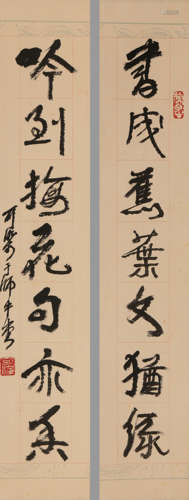 書成蕉葉文猶綠
吟到梅花句亦香
可染于師牛堂